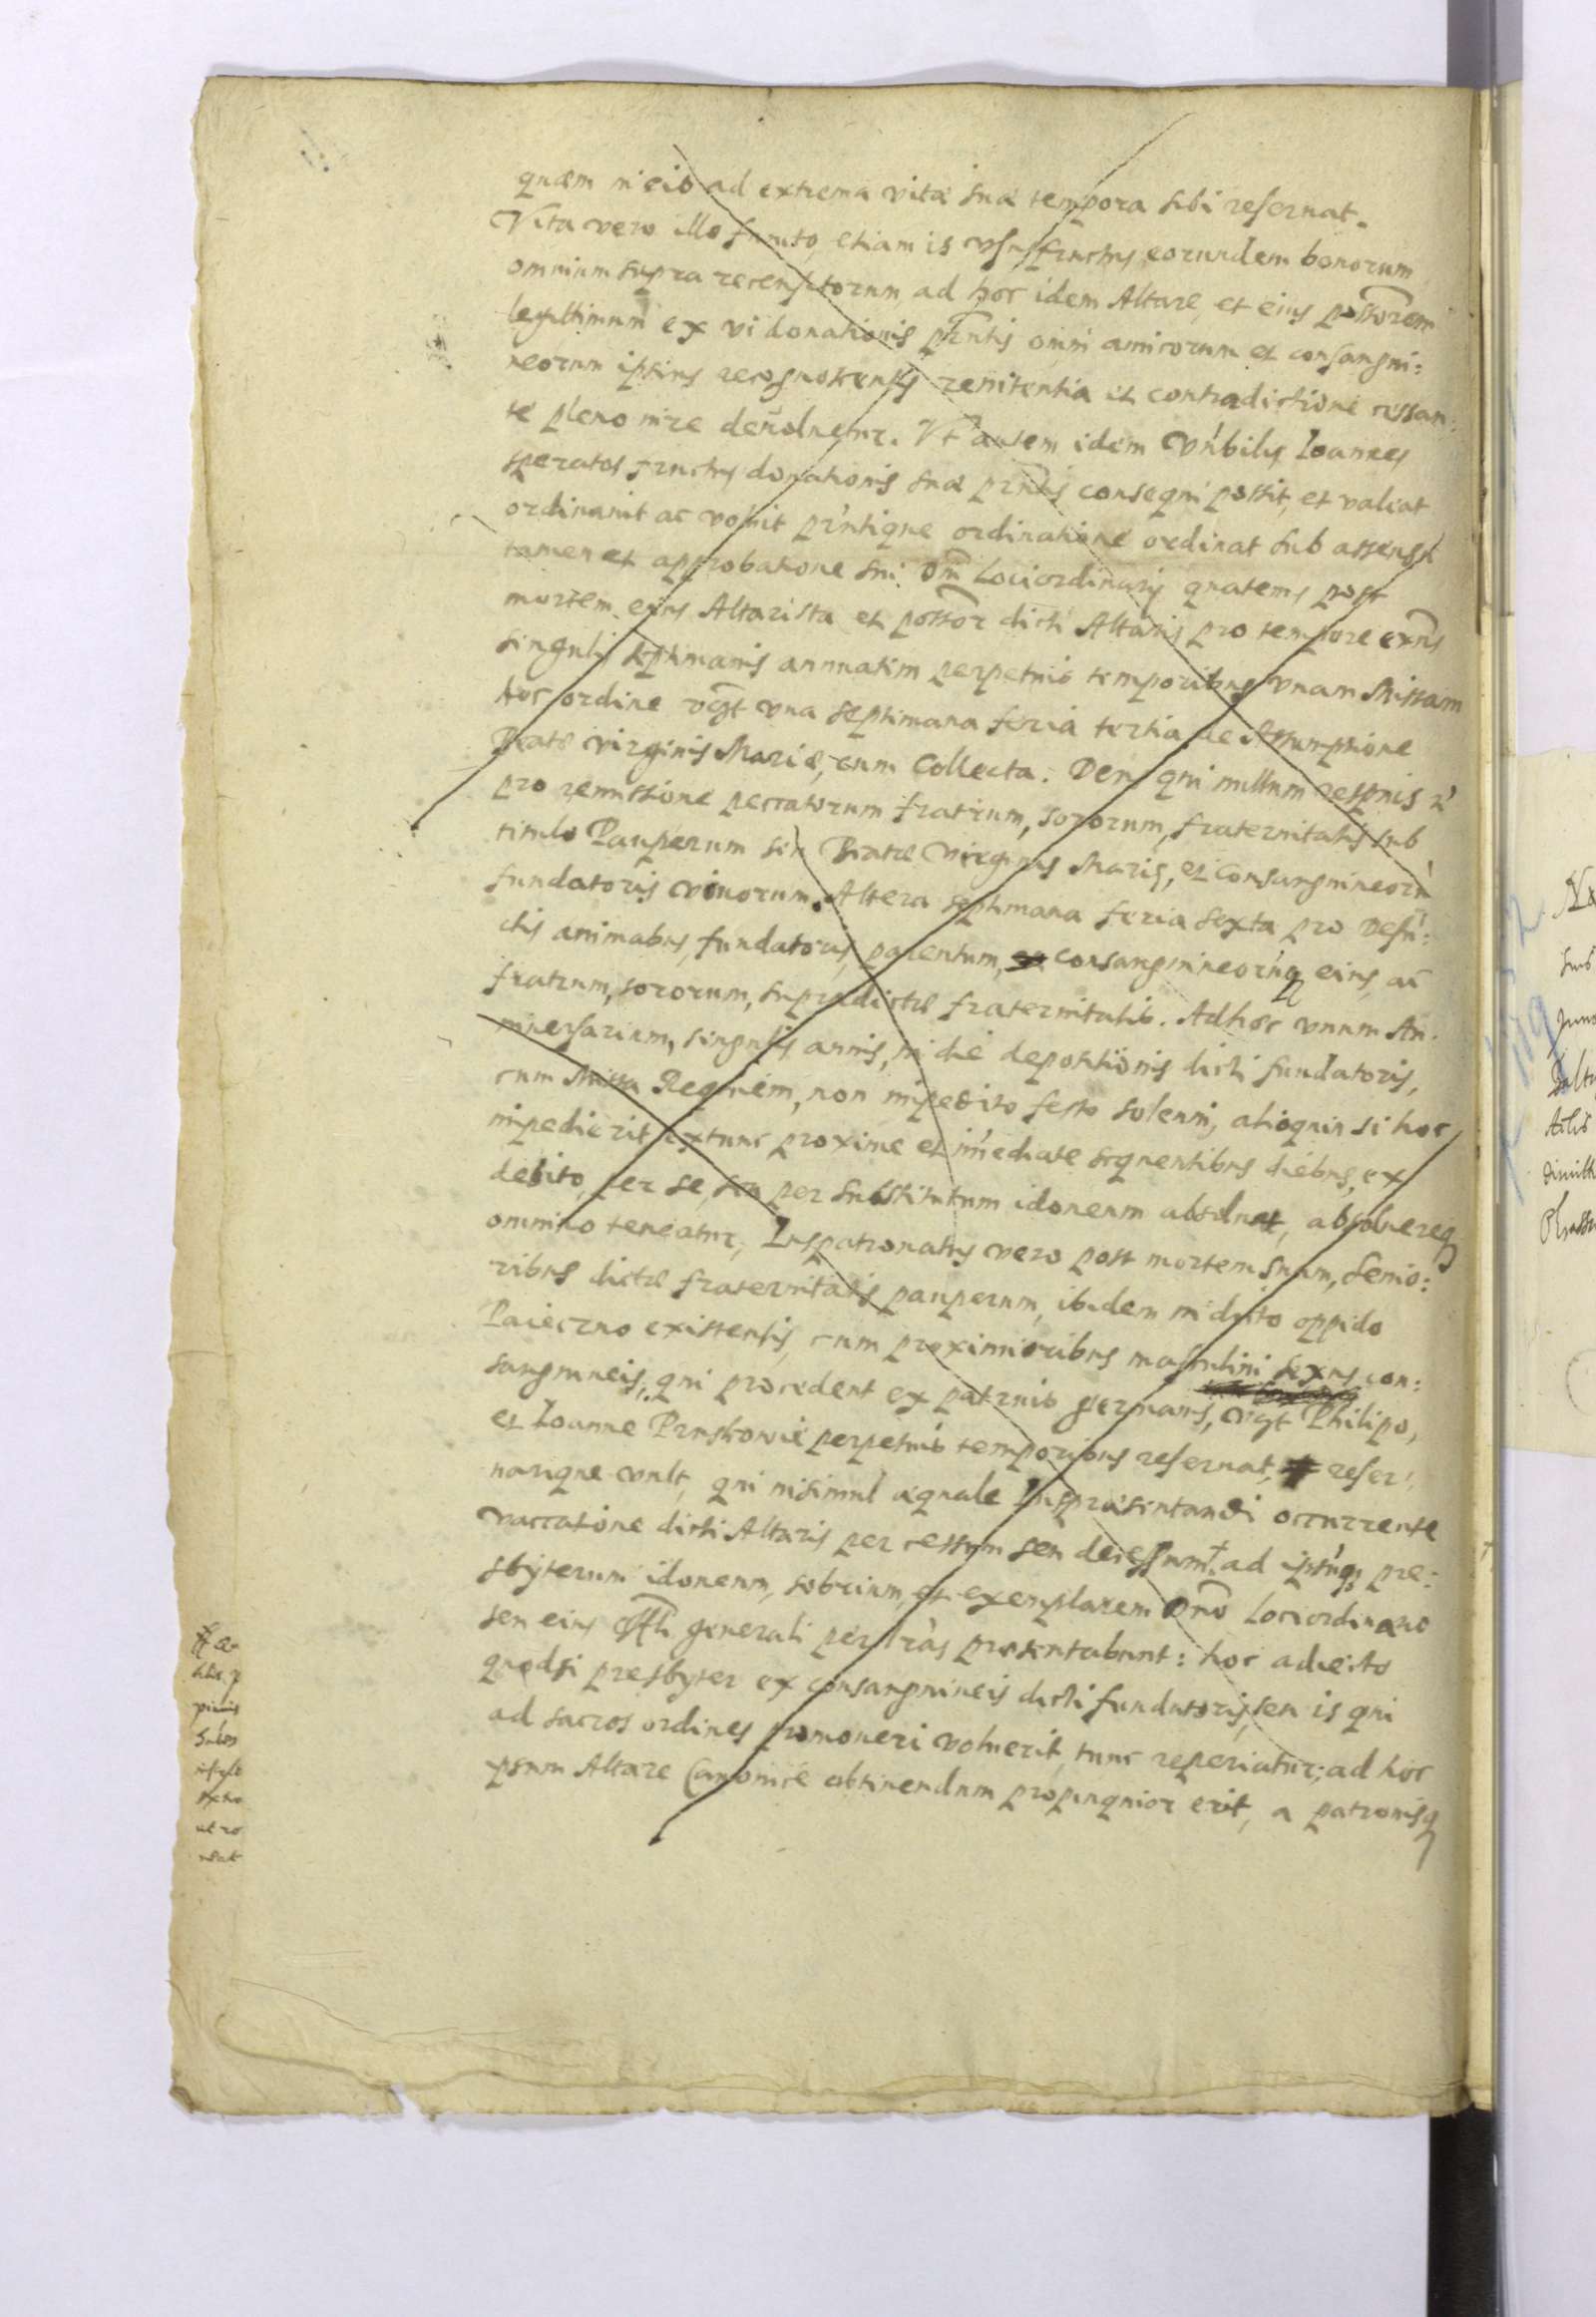 quam in eis ad extrema vitæ suæ tempora sibi reseruat.
Vita vero illo functo, etiam is vsusfructus eorundem bonorum
omnium supra recensitorum, ad hoc idem Altare, et eius possorem
legittimum ex vi donationis pñtis omni amicorum et consangui:
neorum ipsius recognoscentis renitentia et contradictione cessan:
te pleno iure deuoluetur. Vt autem idem Vn̄bilis Ioannes
speratos fructus donationis suæ pñtis consequi possit, et valeat
ordinauit ac voluit pñtique ordinatione ordinat sub assensu
tamen et approbatione sui Dn̄i Lociordinarij quatenus post
mortem eius Altarista et possor dicti Altaris pro tempore exñs
singulis septimanis annuatim perpetuis temporibus vnam Missam
hoc ordine vgt vna septimana feria tertia de Assumptione
Beatæ virginis Mariæ, cum Collecta: Deus qui nullum respuis &
pro remissione peccatorum fratrum, sororum, fraternitatis sub
titulo Pauperum seu Beatæ Virginis Mariæ, et Consanguineorũ
fundatoris viuorum. Altera septimana feria sexta pro Defũ:
ctis animabus, fundatoris, parentum, consanguineorũq eius ac
fratrum, sororum, supradictæ fraternitatis. Adhoc vnum An:
niuersarium, singulis annis, in die depositionis dicti fundatoris,
cum Missa Requiem, non impedito festo solenni, alioquin si hoc
impedierit extunc proxime et im̄ediate sequentibus diebus, ex
debito, per se, seu per substitutum idoneum absoluat, absoluereq
omnino teneatur, Iuspatronatus vero post mortem suam, senio:
ribus dictæ fraternitatis pauperum, ibidem in dicto oppido
Paieczno existentis, cum proximioribus masculini sexus con:
sanguineis, qui procedent ex patruis germanis, vgt Philipo,
et Ioanne Pruskowie perpetuis temporibus reseruat, reser:
uarique vult, qui insimul æquale Iuspræsentandi occurrente
vaccatione dicti Altaris per cessum seu decessum ad ipsũq pre:
sbyterum idoneum, sobrium, et exemplarem Dn̄o Lociordinario
seu eius Offli generali per lr̃as præsentabunt: hoc adiecto
quodsi presbyter ex consanguineis dicti fundatoris, seu is qui
ad sacros ordines promoueri voluerit, tunc reperiatur; ad hoc
ipsum Altare Canonice obtinendum propinquior erit, a patronisq